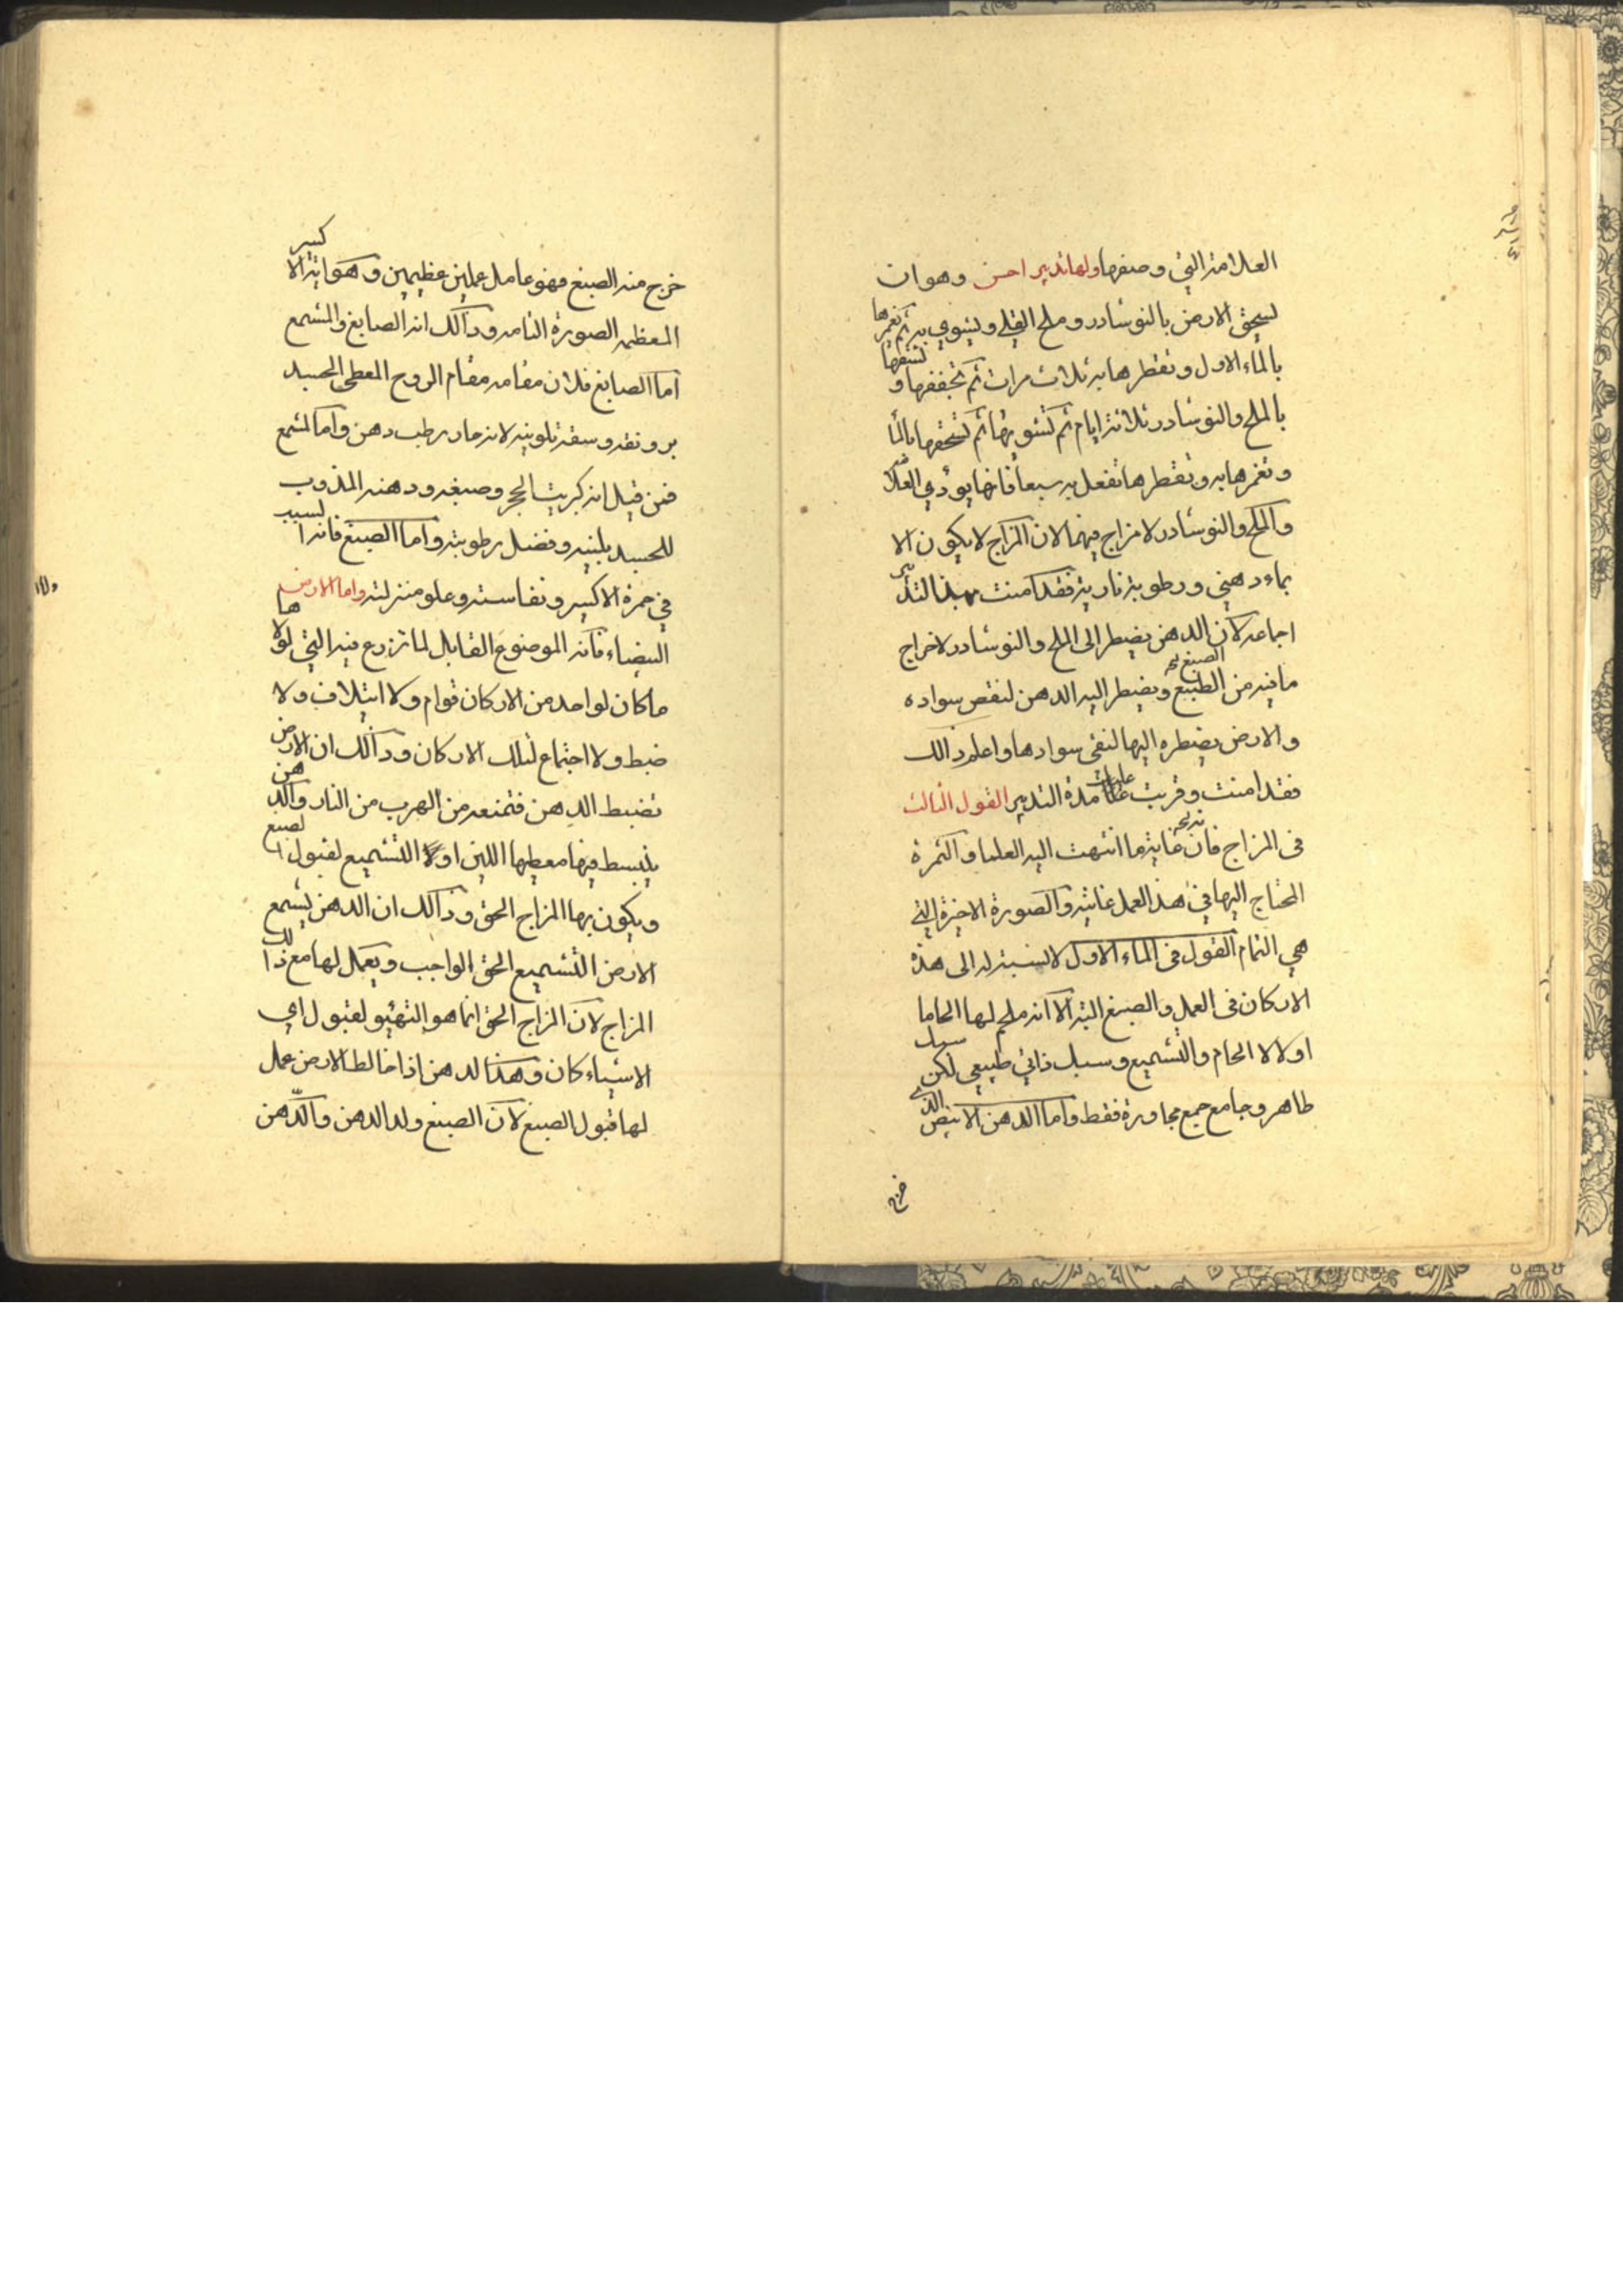 العلامة التي وصفها ولها تدبير احسن وهو ان
تسحق الارض بالنوشادر وملح القلي وتشوي به ثم تغمرها
بالماء الاول وتقطرها به ثلاث مرات ثم تجففها و تسقها
بالملح والنوشادر ثلاثة ايام ثم تشويها ثم تسحقها بالما
وتغمرها به وتقطرها تفعل به سبعا فانها يودي العلامة
والملح والنوشادر لامزاج فيهما لان المزاج لا يكون الا
بماء دهني ورطوبة نارية فقد امنت بهذا التدبير
اجماعه لان الدهن يضطر الى الملح والنوشادر لاخراج
ما فيه من الطبيع الصبغ ويضطر اليه الدهن لنقص سواده
والارض يضطره اليها لنقى سوادها واعلم ذالك
فقد امنت وقربت عليك مدة التدبير القول الثالث
فى المزاج فان غاية ما انتهت اليه العلما والثمرة
المحتاج اليها في هذا العمل غايته والصورة الاخيرة التي
هي التمام القول فى الماء الاول لا نسبة له الى هذه
الاركان فى العمل والصبغ البته الا انه ملحم لها الحاما
اولا لا الحام والتشميع وسبيل ذاتي طبيعي لكن سهل
طاهر وجامع جمع مجاورة فقط واما الدهن الابيض الذي
خرج
خرج منه الصبغ فهو عامل عملين عظيمين وهو اية الاكسير
المعظمه الصورة التامه وذالك انه الصابغ والمشمع
اما الصابغ فلان مقامه مقام الروح المعطي الجسد
برونقه وسقته تلوينه لانه حار رطب دهن واما المشمع
فمن قيل انه كبريت الحجر وصبغه ودهنه المذوب
للجسد بلينه وفضل رطوبته واما الصبغ فانه السبب
في حمرة الاكسير ونفاسته وعلو منزلته واما الارض
البيضاء فانه الموضوع القابل لما تزدرع فيه التي لولاها
ما كان لواحد من الاركان قوام ولا ايتلاف ولا
ضبط ولا اجتماع لتلك الاركان وذالك ان الارض
تضبط الدهن فتمنعه من الهرب من النار والدهن
ينبسط فيها معطيها اللين اولا التشميع لقبول الصبغ
ويكون بها المزاج الحق وذالك ان الدهن يشمع
الارض التشميع الحق الواجب ويعمل لها مع ذالك
المزاج لان المزاج الحق انما هو التهيو لقبول اي
الاشياء كان وهذا لدهن اذا خالط الارض عمل
لها قبول الصبغ لان الصبغ ولد الدهن والدهن